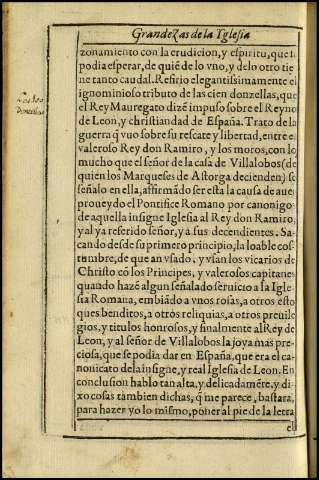 Grandezas de la Yglesia
zonamiento con la erudicion, y espiritu, que se
podia esperar, de quiẽ de lo vno, y de lo otro tie
ne tanto caudal. Refirio elegantissimamente el
ignominioso tributo de las cien donzellas, que
el Rey Mauregato dizẽ impuso sobre el Reyno
de Leon, y christiandad de España. Trato de la
guerra q̃ vuo sobre su rescate y libertad, entre el
valeroso Rey don Ramiro, y los moros, con lo
mucho que el señor de la casa de Villalobos (de
quien los Marqueses de Astorga decienden) se
señalo en ella, affirmãdo ser esta la causa de auer
proueydo el Pontifice Romano por canonigos
de aquella insigne Iglesia al Rey don Ramiro,
y al ya referido señor, y a sus decendientes. Sa-
cando desde su primero principio, la loable cos-
tumbre, de que an vsado, y vsan los vicarios de
Christo cõ los Principes, y valerosos capitanes
quando hazẽ algun señalado seruicio a la Igle
sia Romana, embiãdo a vnos rosas, a otros esto
ques benditos, a otros reliquias, a otros preuile
gios, y titulos honrosos, y finalmente al Rey de
Leon, y al señor de Villalobos la joya mas pre
ciosa, que se podia dar en España, que era el ca-
nonicato de la insigne, y real Iglesia de Leon. En
conclusion hablo tan alta, y delicadamẽte, y di-
xo cosas tambien dichas, q̃ me parece, bastara,
para hazer yo lo mismo, poner al pie de la letra
el